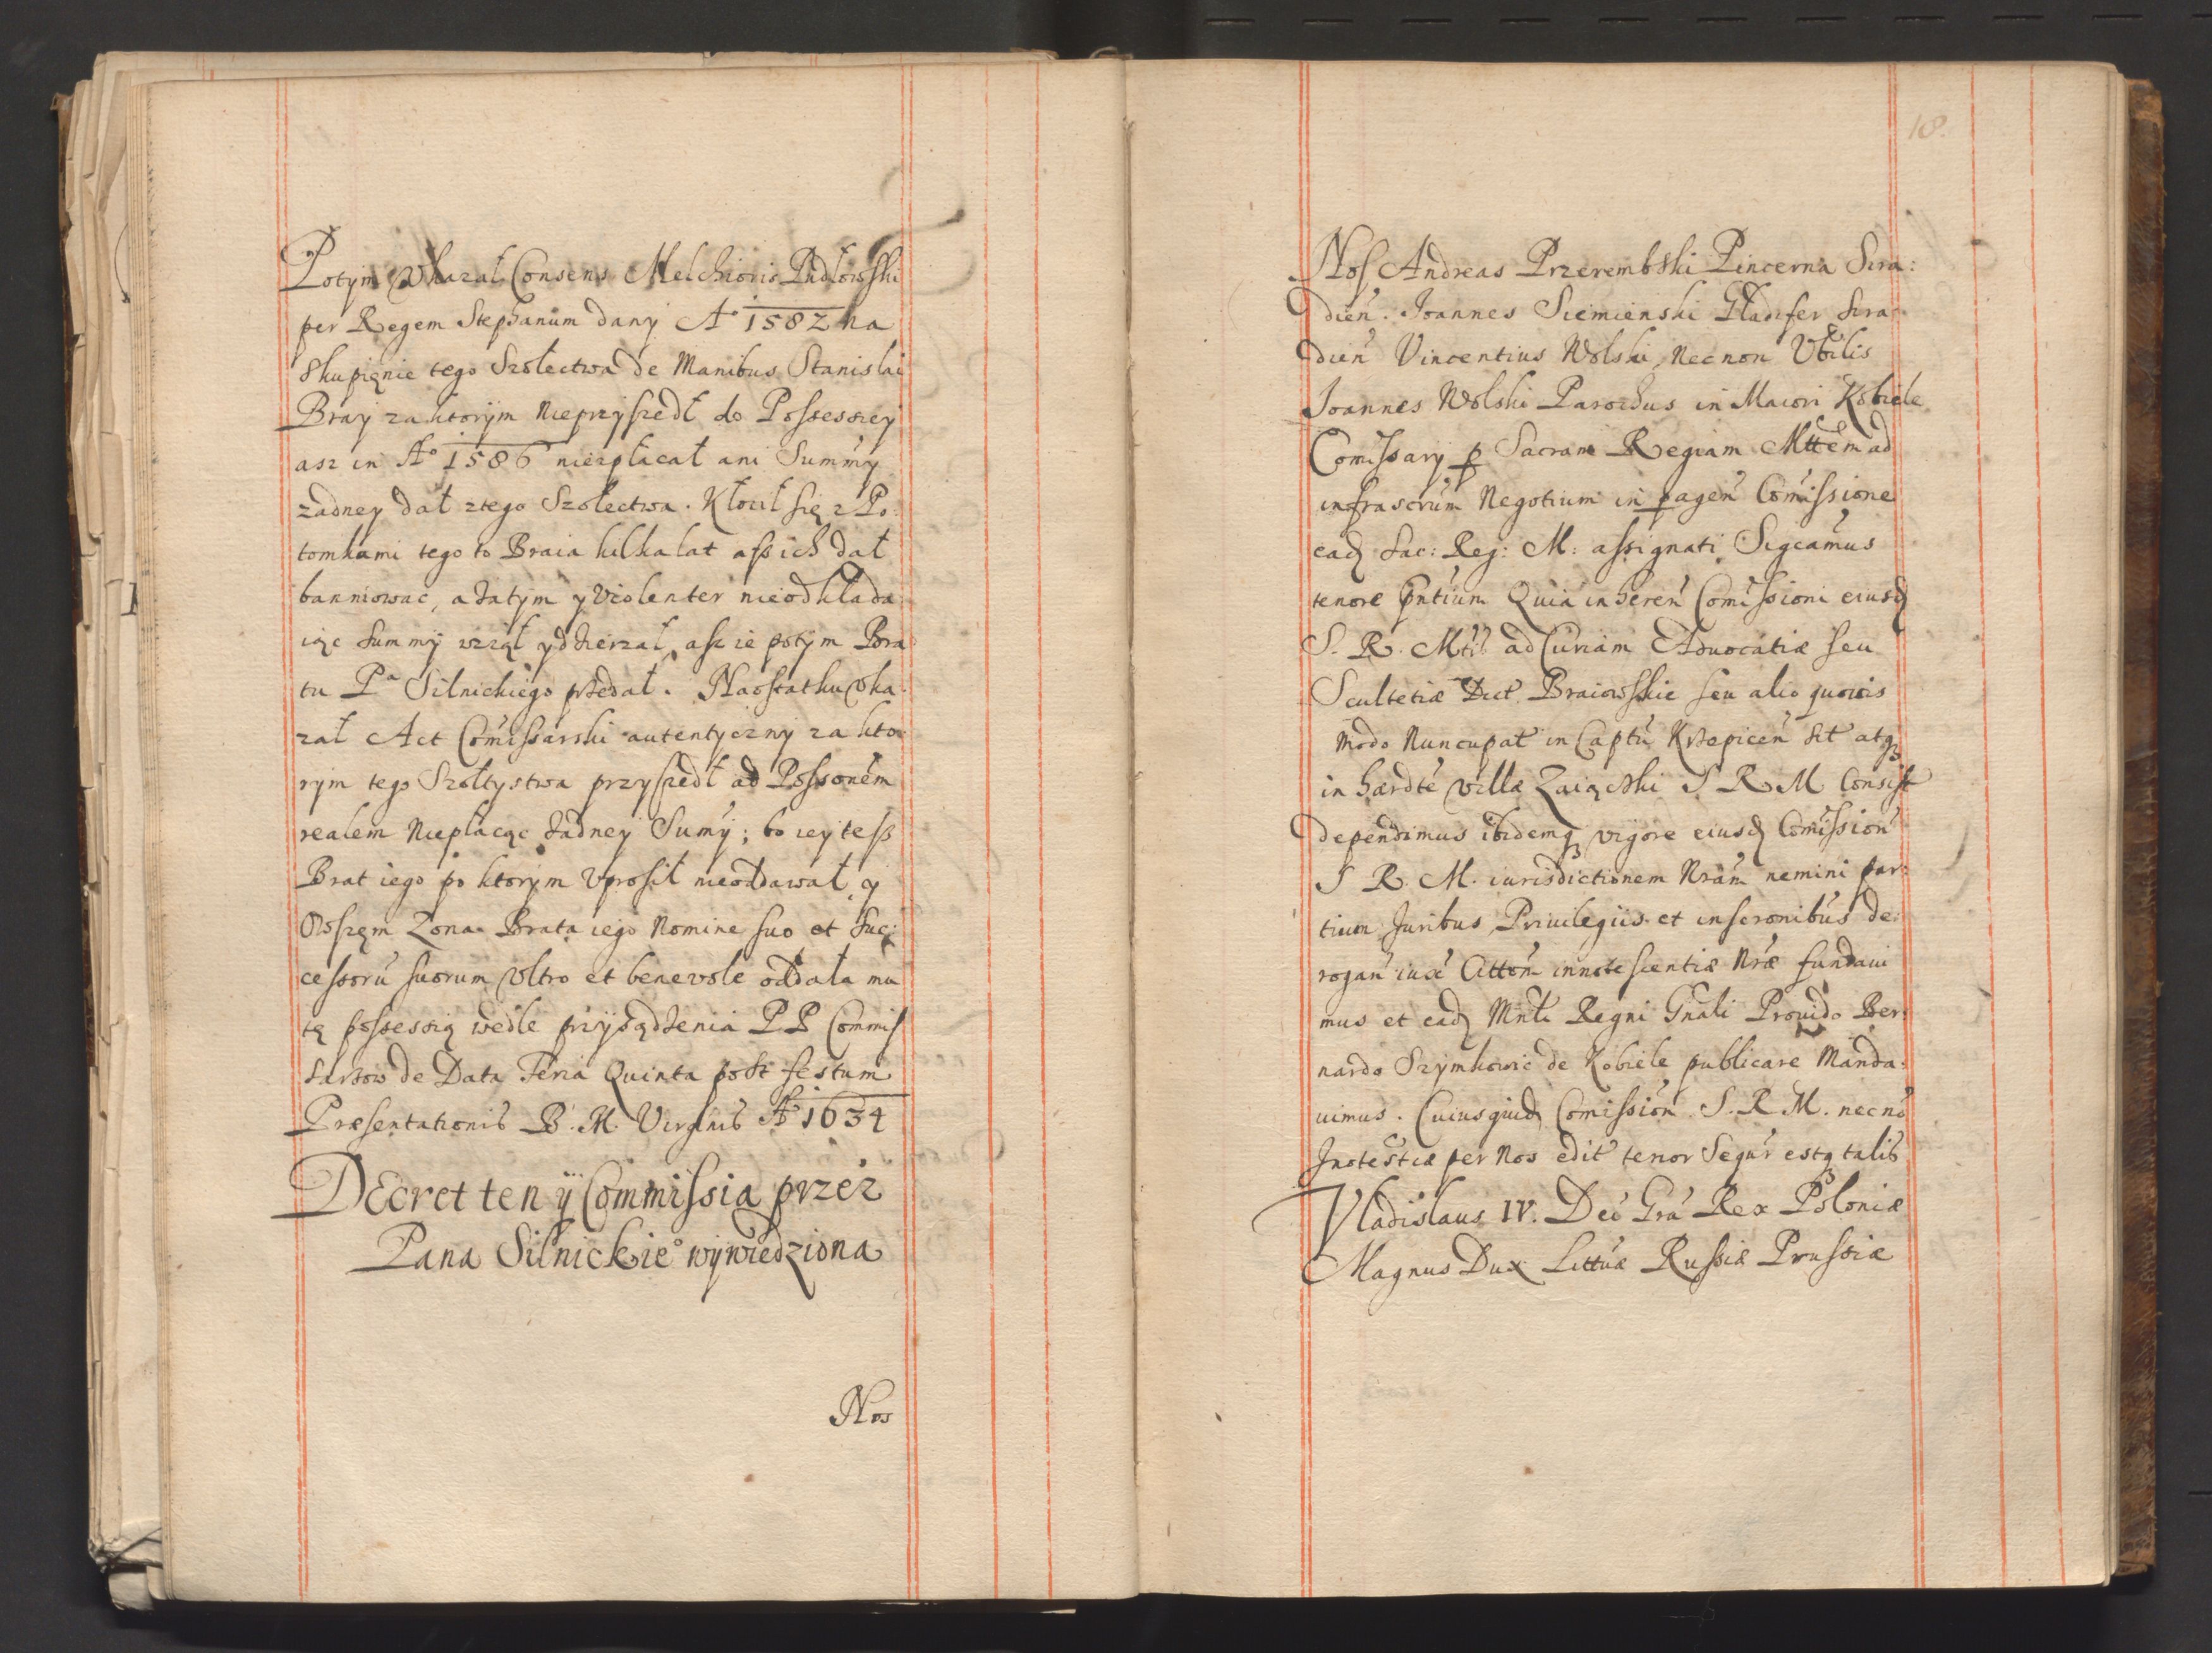 Potym Vkazał Consens Melchioris Pudłowski
per Regem Stephanum dany Aº 1582 na
skupięnie tego Szołectwa de Manibus Stanislai
Bray za ktorym nieprzyszedł do Possessiey
asz in Aº 1586 niezpłacał ani Summy
żadney dał ztego Szołectwa. Kłocił się z Po:
tomkami tego to Braia kilka lat asz ich dał
banniowac, a żatym y violenter nieodkłada
iąc Summy wział y dzierzał, asz ie potym Bra
tu Pª Silnickiego przedał. Naostatku vka:
zał Act Comissarski autentyczny za kto
rym tego Szołtystwa przyszedł ad Possonem
realem Niepłacąc żadney Sumy; bo iey tesz
Brat iego po ktorym Vprosił nieoddawał y
Owszęm Zona Brata iego Nomine suo et Suc:
cessoru suorum Vltro et benevole oddała mu
tę possessią wedle przysądzenia P.P Commis
sarzow de Data Feria Quinta post festum
Præsentationis B. M. Virginis Aº 1634
DEcret ten ÿ Commissia przez
Pana Silnickieº wywiedziona
Nos
18.
Nos Andreas Przerembski Pincerna Sira:
dien. Joannes Siemienski Gladifer Sira
dien Vincentius Wolski, Necnon Vbilis
Joannes Wolski Parochus in Maiori Kobiele
Comissary p Sacram Regiam Mttem ad
infrascrum Negotium in pagen Comissione
eadꝫ Sac: Reg: M: assignati Sigcamus
tenore pntium Quia inheren Comissioni eiusdꝫ
S. R. Mtis ad Curiam Advocatiæ seu
Scultetiæ Dict Braiowskie seu alio quovis
modo Nuncupat in Captu Krzepicen sit atqꝫ
in hærdte villæ Zaiączki S R M Consist
dependimus ibidemqꝫ vigore eiusdꝫ Comission
S R. M. iurisdictionem Nram nemini par:
tium Juribus Priuilegiis et inscronibus de:
rogan iuxa Citton innotescentiæ Nræ fundaui
mus et eadꝫ Mnli Regni Gnali Prouido Ber:
nardo Szymkowic de Kobiele publicare Manda:
uimus. Cuius quidꝫ Comission S. R M. necno
Inotestiæ per Nos edit tenor Sequr estqꝫ talis
Vladislaus IV. Dei Gra Rex Poloniæ
Magnus Dux Littuæ Russiæ Prussiæ